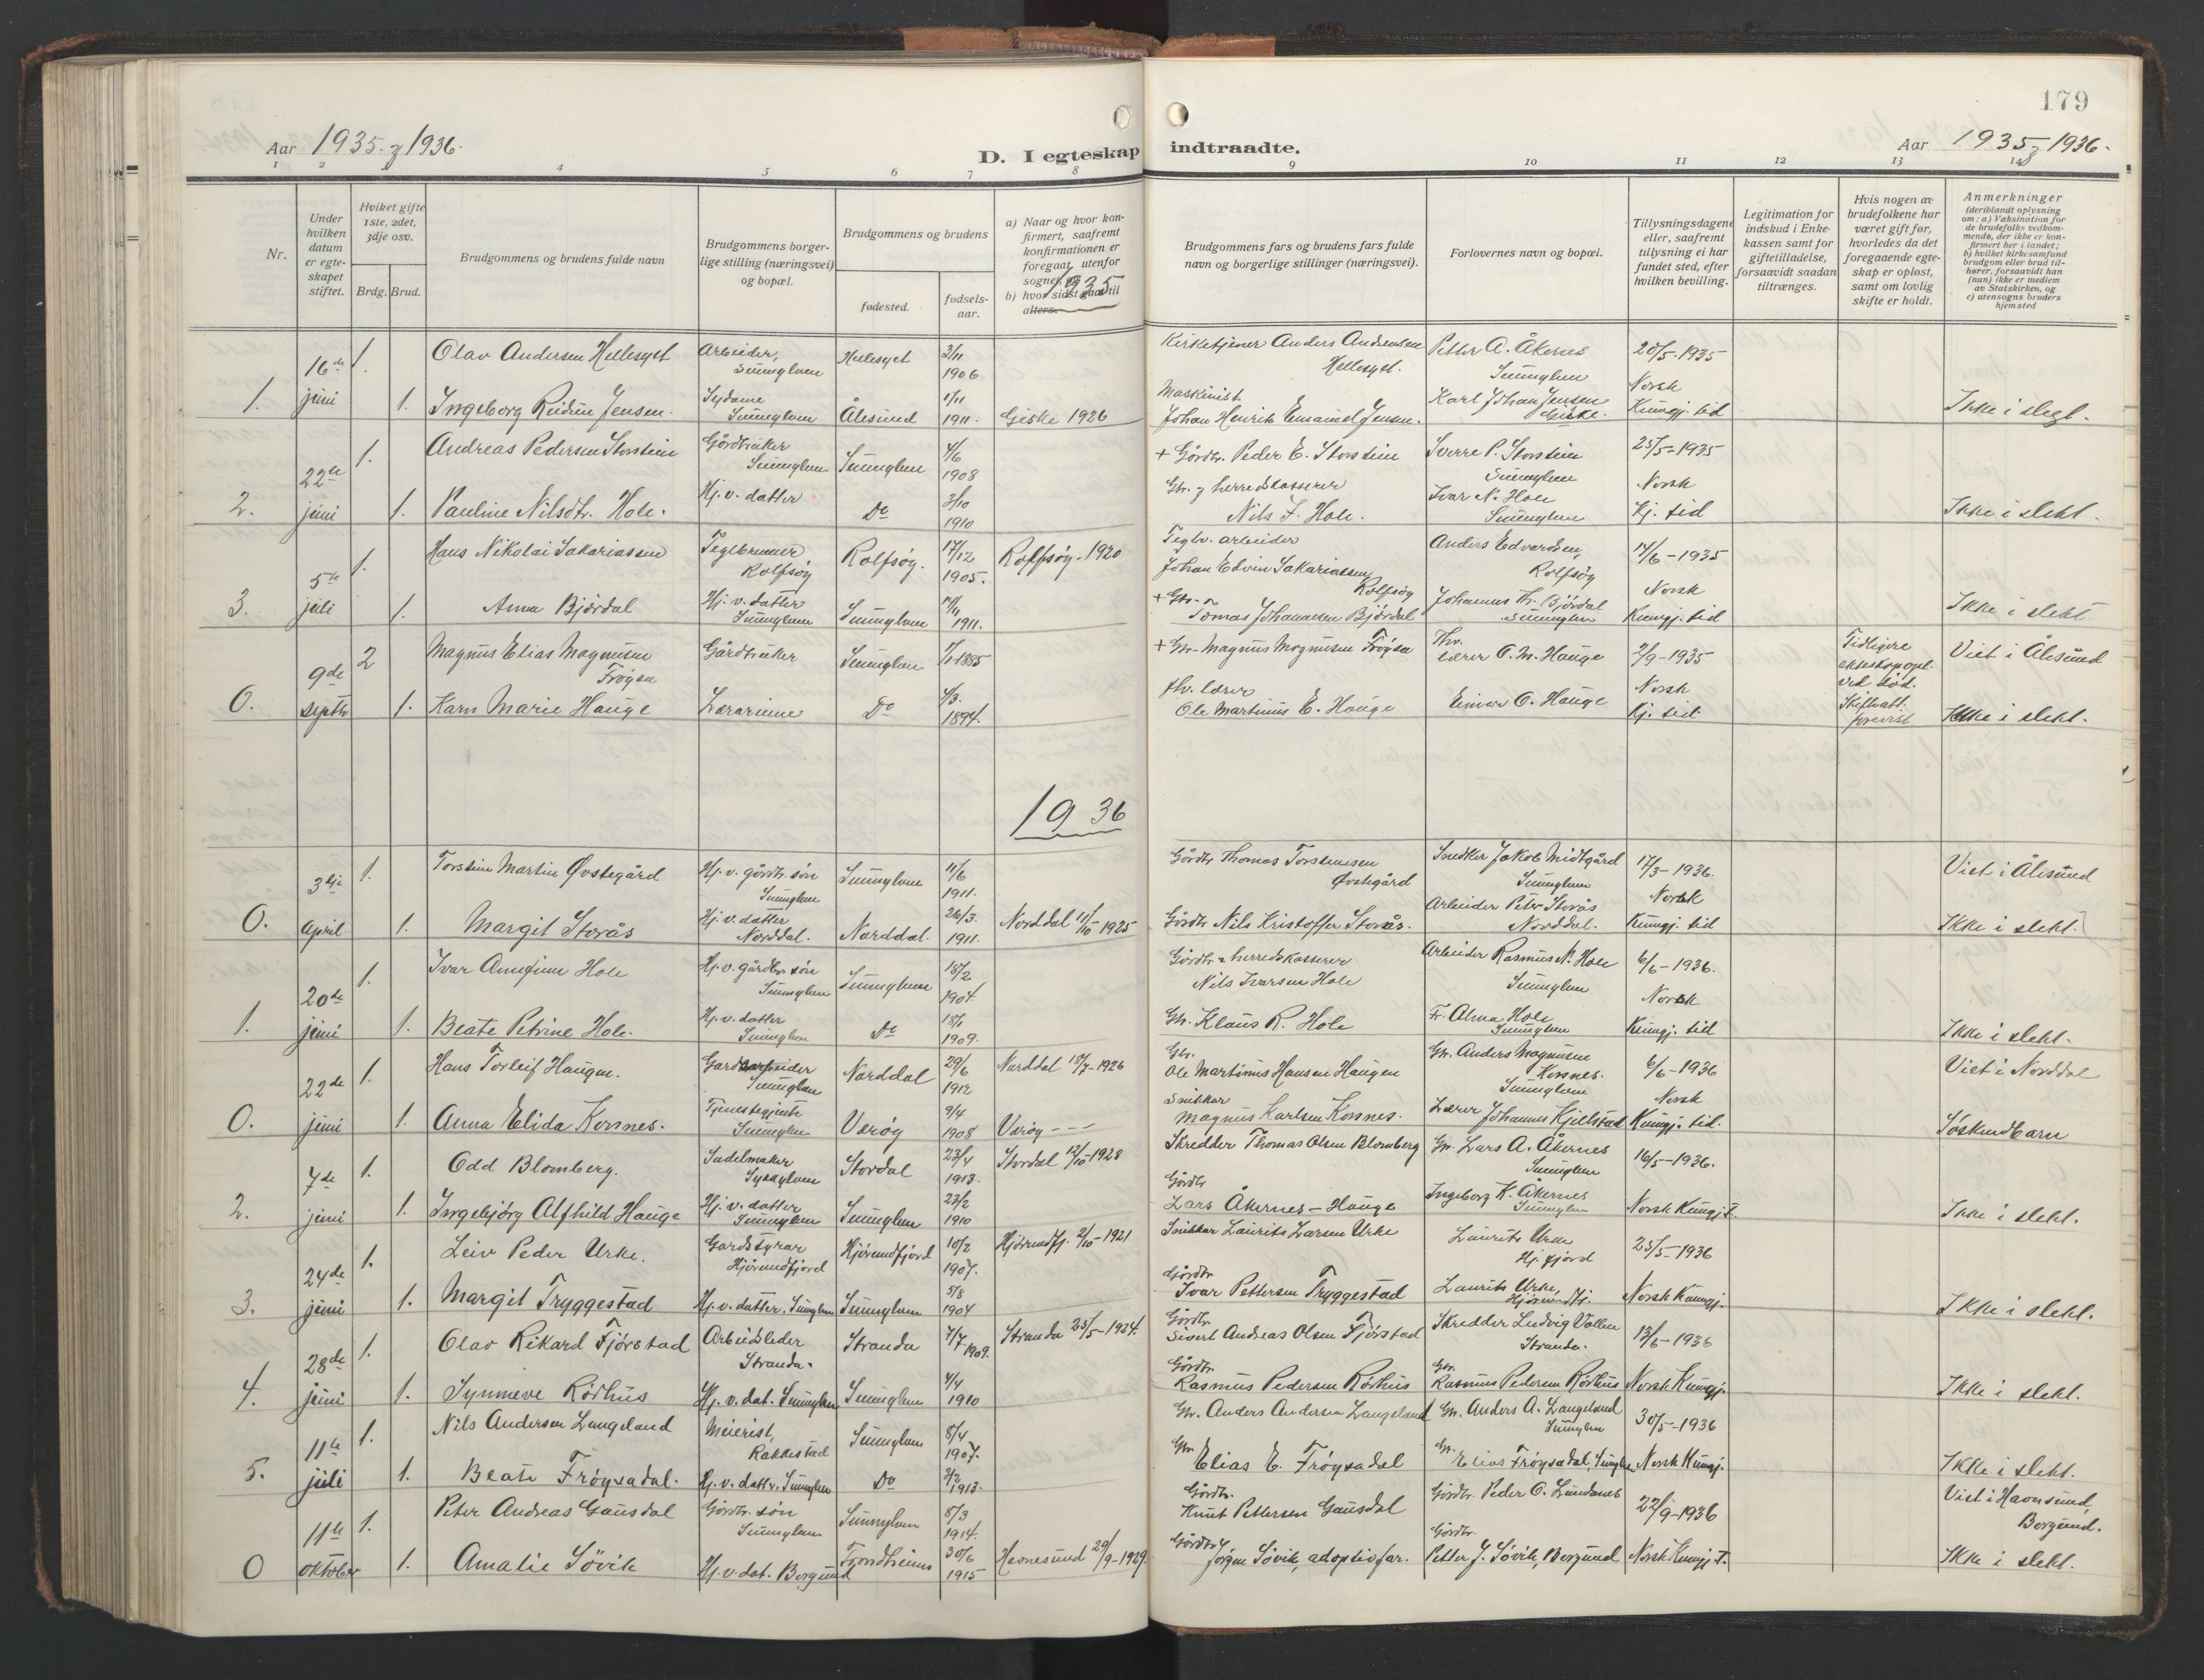 179
Aar 1935 - 1936.
D. I egteskap indtraadte.
Aar 1935 - 1936.
1 2 3 4 5 6 7 8 9 10 11 12 13 14
Nr.
Under hvilken datum er egte-skapet stiftet.
Hviket gifte 1ste, 2det, 3dje osv.
Brdg. Brud.
Brudgommens og brudens fulde navn
Brudgommens borger-lige stilling (næringsvei) og bopæl.
Brudgommens og brudens
fødested.
fødsels-aar.
a) Naar og hvor kon-firmert, saafremt konfirmationen er foregaat utenfor sognet.
b) hvor sidst gaat til alters.
1935
Brudgommens fars og brudens fars fulde navn og borgerlige stillinger (næringsvei).
Forlovernes navn og bopæl.
Tillysningsdagene eller, saafremt tillysning ei har fundet sted, efter hvilken bevilling.
Legitimation for indskud i Enke-kassen samt for giftetilladelse, forsaavidt saadan tiltrænges.
Hvis nogen av brudefolkene har været gift før, hvorledes da det foregaaende egte-skap er opløst, samt om lovlig skifte er holdt.
Anmerkninger
(deriblandt oplysning om: a) Vaksination for de brudefolks vedkom-mende, der ikke er kon-firmert her i landet; b) hvilket kirkesamfund brudgom eller brud til-hører, forsaavidt han (hun) ikke er medlem av Statskirken, og c) utensogns bruders hjemsted
16de 1. Olav Andersen Hellesylt Arbeider, Sunnylven Hellesylt 2/11 1906 Kirketjener Anders Andreassen Hellesylt. Petter A. Åkernes Sunnylven 20/5-1935 Norsk
1. juni 1. Ingeborg Reidun Jensen. Sydame Sunnylven Ålesund 1/11 1911. Giske 1926 Maskinist Johan Henrik Emanuel Jensen. Karl Johan Jensen Giske. Kungj. tid Ikke i slegt.
22de 1. Andreas Pedersen Storstein Gårdbruker Sunnylven Sunnylven 4/6 1908 + Gårdbr. Peder E. Storstein Sverre P. Storstein Sunnylven 25/5-1935 Norsk
2. juni 1. Pauline Nilsdtr. Hole. Hj. v. datter Do 3/10 1910 Gbr. & herredskasserer Nils I. Hole. Ivar N. Hole Sunnylven Kj. tid Ikke i slekt.
5te 1. Hans Nikolai Sakariassen Teglbrenner Rolfsøy Rolfsøy. 17/12 1905. Rolfsøy. 1920 Teglv. arbeider Johan Edvin Sakariassen Rolfsøy Anders Edvardsen, Rolfsøy 14/6-1935 Norsk
3. juli 1. Anna Bjørdal Hj. v. datter Sunnylven Sunnylven 1911. + Gbr. Tomas Johannesen Bjørdal Johannes Th. Bjørdal Sunnylven Kungj. tid Ikke i slekt
9de 2 Magnus Elias Magnusen Frøysa Gårdbruker Sunnylven 1885 + Gbr. Magnus Magnusen Frøysa Fhv. lærer O. M. Hauge 2/9-1935 Norsk Tidligere ekteskap opl. ved død. Skifteatt. forevist Viet i Ålesund
0. septbr 1. Karn Marie Hauge Lærarinne Do 4/3. 1894. fhv. lærer Ole Martinus E. Hauge Einar O. Hauge Kj. tid. Ikke i slekt.
1936
3dje 1. Torstein Martin Øvstegård Hj. v. gårdbr. søn Sunnylven Sunnylven 11/6 1911. Gårdbr. Thomas Torsteinsen Øvstegård Snedker Jakob Midtgård Sunnylven 17/3-1936. Norsk Viet i Ålesund
0. April 1. Margit Storås Hj. v. datter Norddal. Norddal. 26/3. 1911. Norddal 11/10-1925 Gårdbr. Nils Kristoffer Storås. Arbeider Peter Storås Norddal. Kungj. tid Ikke i slekt.
20de 1. Ivar Arnfinn Hole Hj. v. gårdbr. søn Sunnylven Sunnylven 18/2 1904. Gårdbr. & herredskasserer Nils Ivarsen Hole Arbeider Rasmus N. Hole Sunnylven 6/6-1936. Norsk
1. juni 1. Beate Petrine Hole. Hj. v. datter Sunnylven Do 18/1 1909. Gbr. Klaus R. Hole Fr. Alma Hole Sunnylven Kungj. tid Ikke i slekt.
22de 1. Hans Torleif Haugen. Gardsarbeider Sunnylven Norddal 29/6 1912 Norddal 18/7-1926 Gbr. Ole Martinus Hansen Haugen Gbr. Anders Magnusen Korsnes. Sunnylven 6/6-1936 Norsk Viet i Norddal
0. juni 1. Anna Elida Korsnes. Tjenestegjente Sunnylven Værøy 9/4 1908 Værøy - - - Snikkar Magnus Karlsen Korsnes. Lærer Johannes Kjellstad Kungj. tid. Søskendbarn
7de 1. Odd Blomberg. Sadelmaker Sykkylven Stordal 23/4 1913. Stordal 12/10-1928 Skredder Thomas Olsen Blomberg Gbr. Lars A. Åkernes Sunnylven 16/5-1936.
2. juni 1. Ingebjörg Alfhild Hauge Hj. v. datter Sunnylven Sunnylven 23/2 1910 Gårdbr. Lars Åkernes - Hauge Ingeborg K. Åkernes Sunnylven Norsk Kungj. T. Ikke i slekt.
24de 1. Leiv Peder Urke. Gardstyrar Hjørundfjord Hjørundfjord 10/2 1907. Hjørundfj. 2/10-1921 Snikkar Laurits Larsen Urke Laurits Urke Hj.fjord 25/5-1936
3. juni 1. Margit Tryggestad Hj. v. datter. Sunnylven Sunnylven 5/8 1904 Gårdbr. Ivar Pettersen Tryggestad Laurits Urke, Hjørundfj. Norsk Kungj. Ikke i slekt.
28de 1. Olav Rikard Fjørstad Arbeidsleder Stranda. Stranda 7/7 1909. Stranda 25/5-1924. Gårdbr. Sivert Andreas Olsen Fjørstad Skredder Ludvig Vollen Stranda. 13/6-1936
4. juni 1. Synneve Rødhus Hj. v. dat. Sunnylven Sunnylven 4/4 1910 Gårdbr. Rasmus Pedersen Rødhus Gbr. Rasmus Pedersen Rødhus Norsk Kungj. Ikke i slekt.
11te 1. Nils Andersen Langeland Meierist, Rakkestad Sunnylven 8/4 1907. Gbr. Anders Andersen Langeland Gbr. Anders A. Langeland Sunnylven 30/5-1936
5. juli 1. Beate Frøysadal. Hj. v. dattr. Sunnylven Do 3/2 1913. Gbr. Elias E. Frøysadal Gbr. Elias Frøysadal, Sunnylven Norsk Kungj. Ikke i slekt.
11te 1. Peter Andreas Gausdal Gårdbr. søn Sunnylven Sunnylven 8/3 1914. Gårdbr. Knut Pettersen Gausdal Gårdbr. Peder O. Lundanes 22/9-1936 Viet i Havnsund, Borgund.
0 oktober 1. Amalie Søvik Hj. v. dat. Borgund Trondheim 30/6 1915 Havnesund 29/9-1929 Gårdbr. Jørgen Søvik, adoptivfar. Gårdbr. Petter J. Søvik, Borgund Norsk Kungj. T. Ikke i slekt.